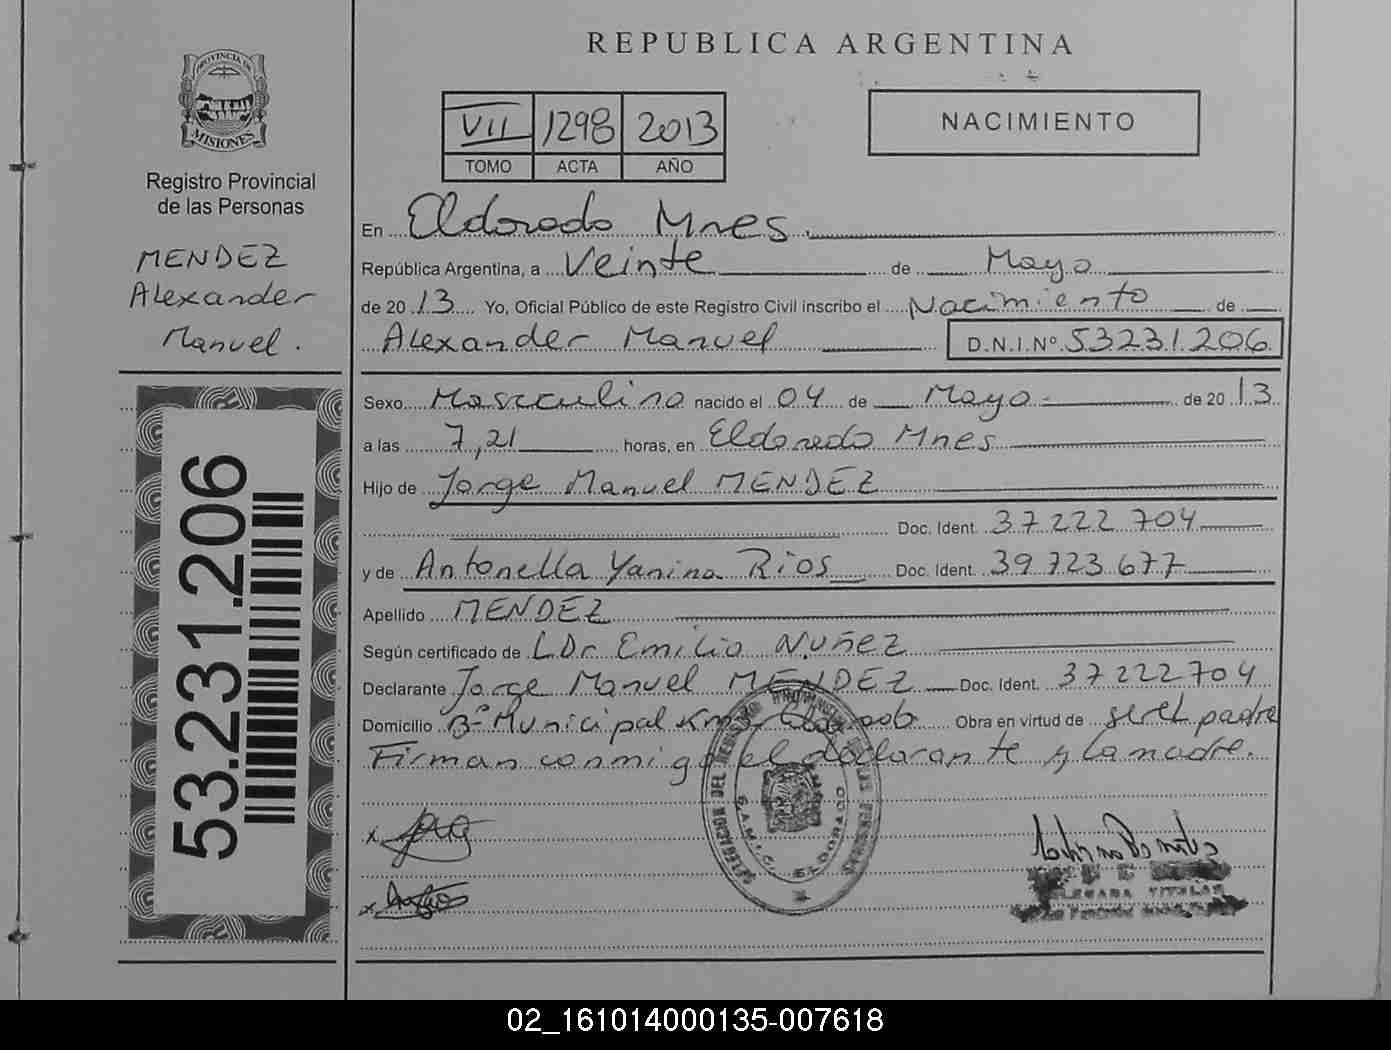 REPUBLICA ARGENTINA
PROVINCIA DE
MISIONES
Registro Provincial
de las Personas
MENDEZ
Alexander
Manuel.
53.231.206
VII 1298 2013
TOMO ACTA AÑO
NACIMIENTO
En Eldorado Mnes.
República Argentina, a Veinte de Mayo
de 2013 Yo, Oficial Público de este Registro Civil inscribo el Nacimiento de
Alexander Manuel D.N.I.Nº 53231.206
Sexo Masculino nacido el 04 de Mayo de 2013
a las 7,21 horas, en Eldorado Mnes
Hijo de Jorge Manuel MENDEZ
Doc. Ident. 37 222 704
y de Antonella Yanina Rios Doc. Ident. 39 723 677
Apellido MENDEZ
Según certificado de LDr Emilio Nuñez
Declarante Jorge Manuel MENDEZ Doc. Ident. 37 222 704
Domicilio Bº Municipal Km Obra en virtud de ser el padre
Firman conmigo el declarante y la madre.
DELEGACION DEL REGISTRO PROVINCIAL DE LAS PERSONAS
ELDORADO
x
x
TITULAR
02_161014000135-007618